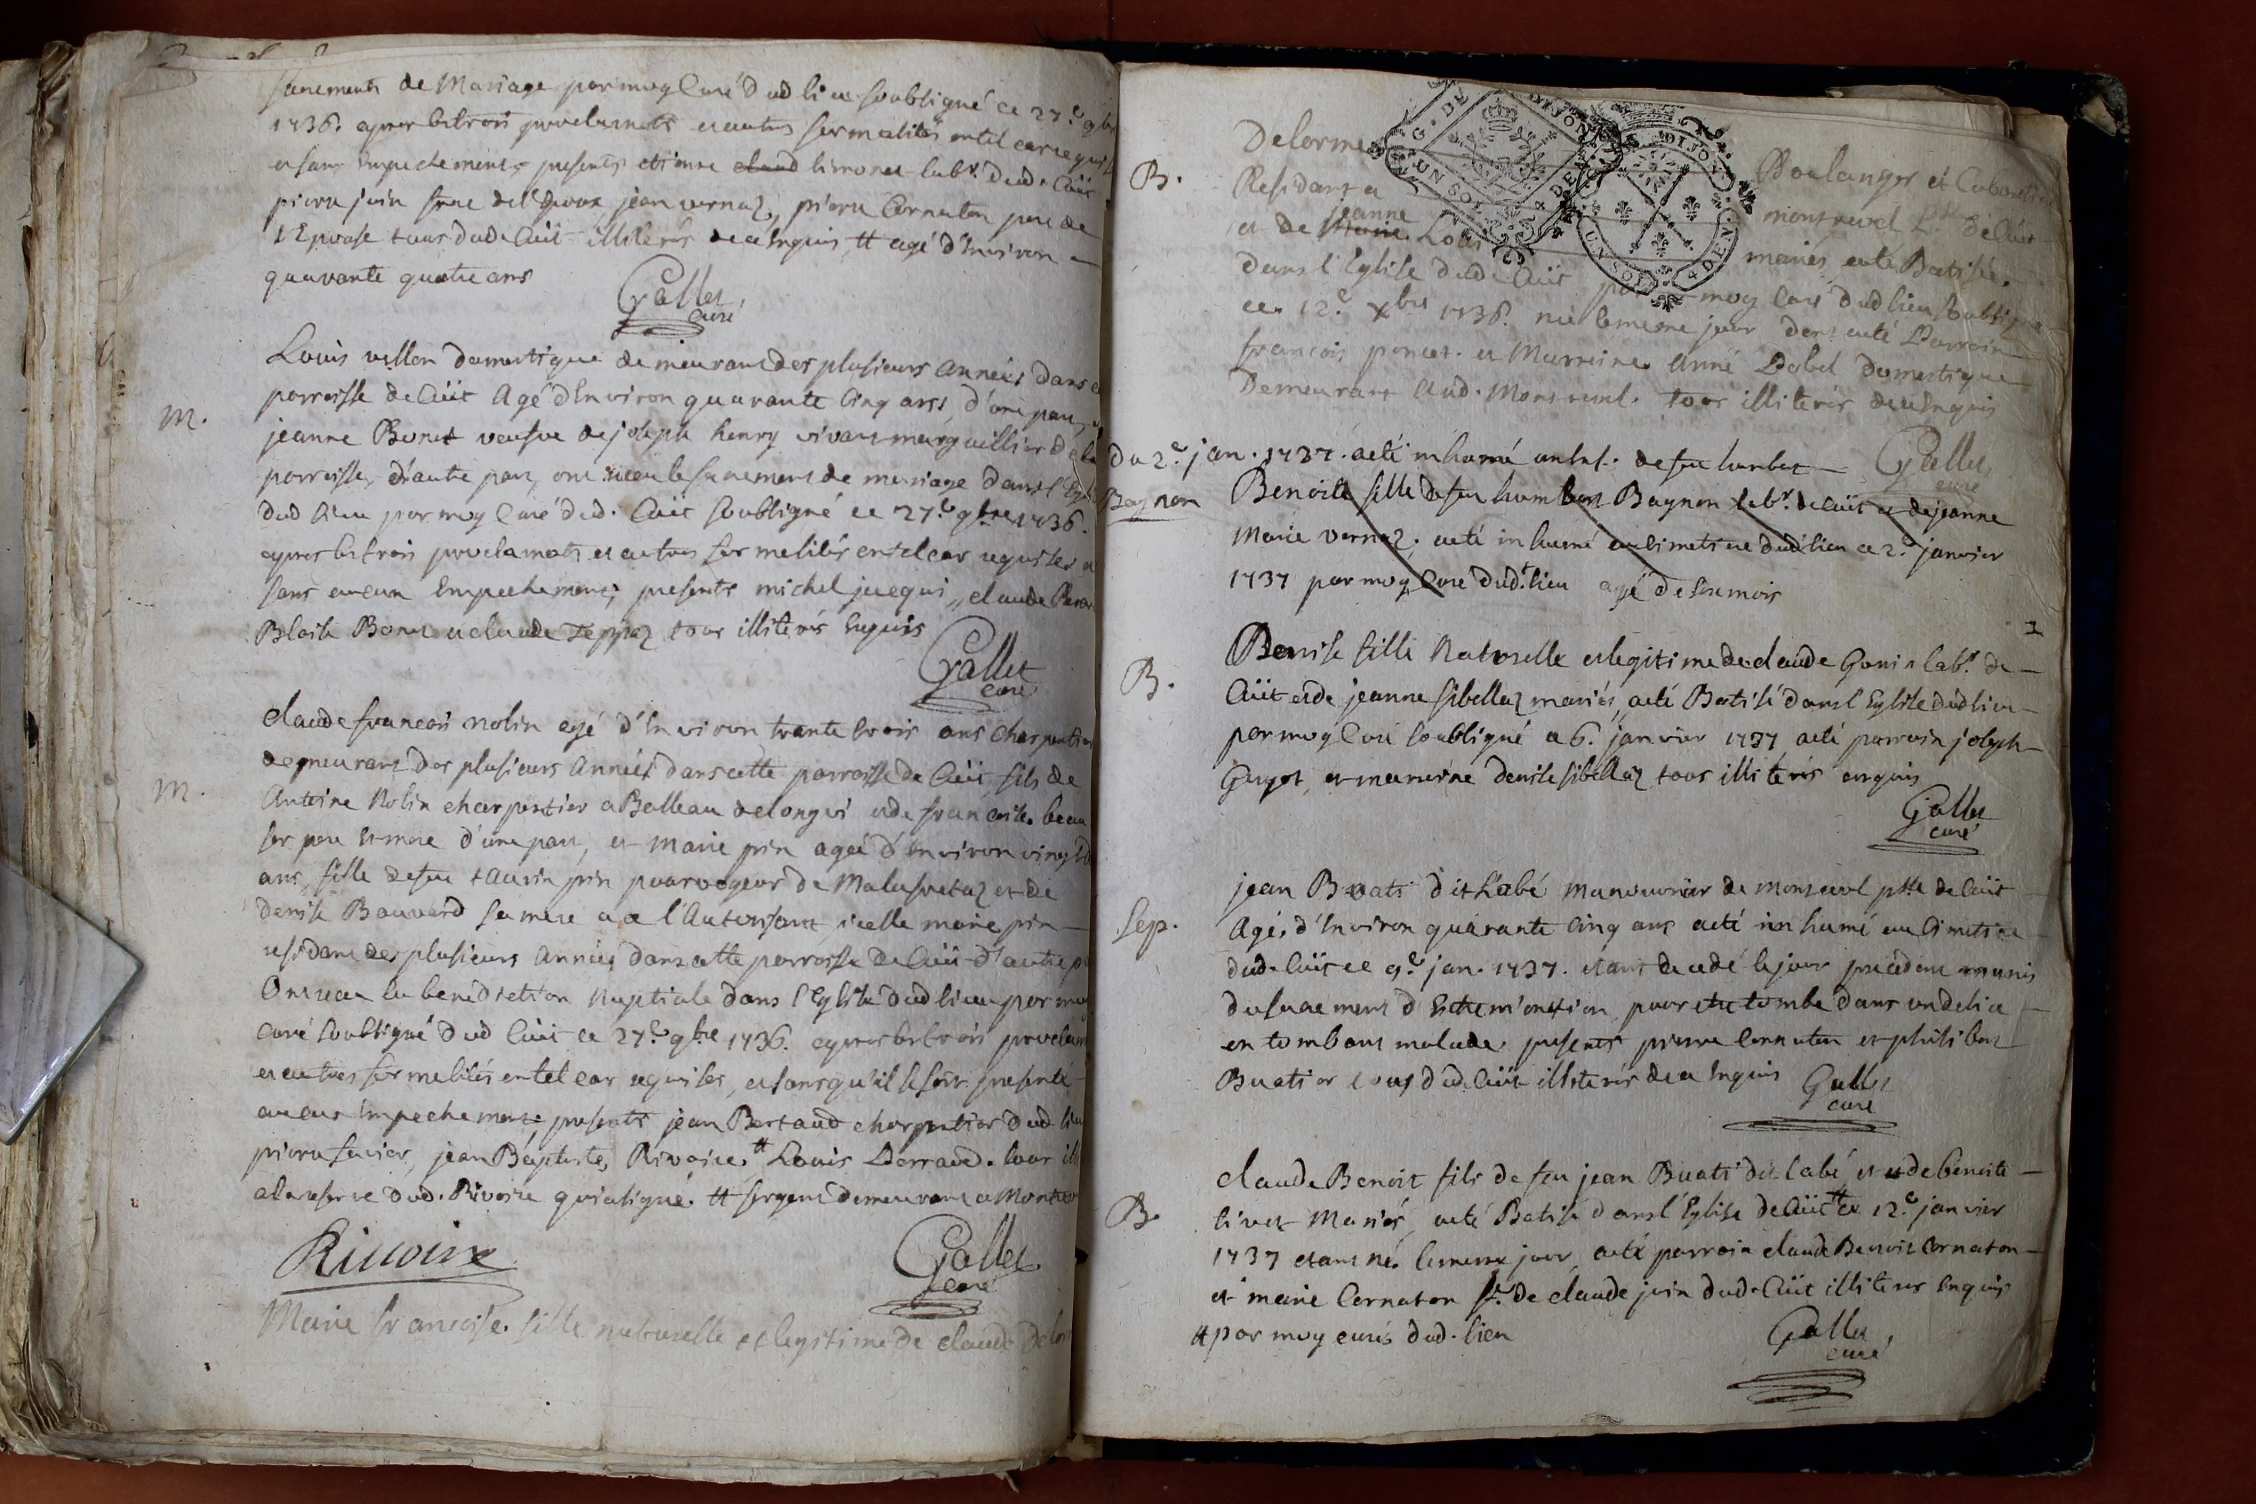 sacrement de Mariage par moy Curé dud lieu soubsigné ce 27.e 9bre
1736. apres les trois proclamats et autres formalités en tel cas requises
et sans empechements presents etienne claud limonet labr. dud. Cüit
pierre juin frere de l'Epoux jean vernaz, pierre Cornaton pere de
l'Epouse tous dud Cüit illiterés de ce Enquis, tt agé d'Environ
quarante quatre ans
Gallet,
curé
M.
Louis domestique demeurant des plusieurs années dans
parroisse de Cüit Agé d'Environ quarante Cinq ans, d'une part,
jeanne Bonet veufve de joseph henry vivant marguillier de la
parroisse, d'autre part, ont reçeu le sacrement de mariage dans l'
dud lieu par moy Curé dud. Cüit soubsigné ce 27.e 9bre 1736.
apres les trois proclamats et autres formalités en tel cas requises
sans aucun Empechement, presents michel jacqui, claude
Blaise Bonet et claude tous illiterés Enquis
Gallet
curé
M.
claude francois nolin agé d'Environ trante trois ans charpentier
demeurant des plusieurs années dans cette parroisse de Cüit, fils de
Antoine Nolin charpentier a et de francoise beau
ser pere et mere d'une part, et Marie prin agée d'Environ vingt
ans, fille de feu prin pourvoyeur de et de
denise Bouvard sa mere icelle marie prin
residant des plusieurs années dans cette parroisse de Cüit d'autre p
Ont receu la benediction Nuptiale dans l'Eglise dud lieu par moy
curé soubsigné dud Cüit ce 27.e 9bre 1736. apres les trois proclam
et autres formalités en tel cas requises, et sans qu'il se soit presenté
aucun Empechement presents jean Bertaud charpentier dud lieu
pierre jean Baptiste Rivoire tt Louis tous
a la reserve dud. Rivoire qui a signé. tt sergent demeurant a Montrev
Rivoire
Gallet
curé
Marie francoise fille naturelle et legitime de claude
B.
Delorme Boulanger et Cabartier
Residant a montrevel psse de Cüit
jeanne
et de mariés a eté Batisée
dans l'Eglise dud. Cüit par moy Curé dud lieu soubsigné
ce. 12.e Xbre 1736. née le meme jour dont a eté Parrain
francois poncet. et Marreine Anne Dobel domestique
Demeurant Aud. Montrevel. tous illiterés de ce Enquis
Gallet,
curé
du 2.e jan. 1737. a eté inhumé de feu humbert
Baynon
Benoite fille de feu humbert Baynon labr. de Cüit et de jeanne
Marie vernaz, a eté inhumé au Cimetiere dud. lieu ce 2.e janvier
1737 par moy Curé dud.t lieu agé de mois
1
B.
Denise fille Naturelle et legitime de claude Gonin labr. de
Cüit et de jeanne sibellaz mariés, a eté Batisé dans l'Eglise dud lieu
par moy Curé soubsigné ce 6.e janvier 1737 a eté parrain joseph
Guyot, et marreine denise sibellaz tous illiterés enquis
Gallet
curé
Sep.
jean Buati dit L'abé manouvrier de Montrevel psse de Cüit
Agé, d'Environ quarante Cinq ans a eté inhumé au Cimetiere
dud. Cüit ce 9.e jan. 1737. etant decedé le jour precedent munis
du sacrement d'Extremonxtion pour etre tombé dans un delire
en tombant malade. presents pierre Cornaton et philibert
Buatier tous dud Cüit illiterés de ce Enquis
Gallet
curé
B.
claude Benoit fils de feu jean Buati dit labé, et de benoite
livet Mariés, a eté Batisé dans l'Eglise de Cüit tt ce 12.e janvier
1737 etant né. le meme jour, a eté parrain claude Benoit Cornaton
et marie Cornaton fe. de claude juin dud. Cüit illiterés Enquis
tt par moy curé dud. lieu
Gallet,
curé